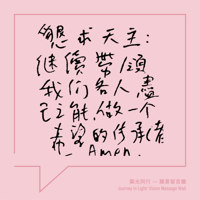 懇求天主：
继續帶領
我们各人盡
己之能,做一个
希望的传承者
_Amen.
曙光同行 － 願景留言牆
Journey in Light: Vision Message Wall